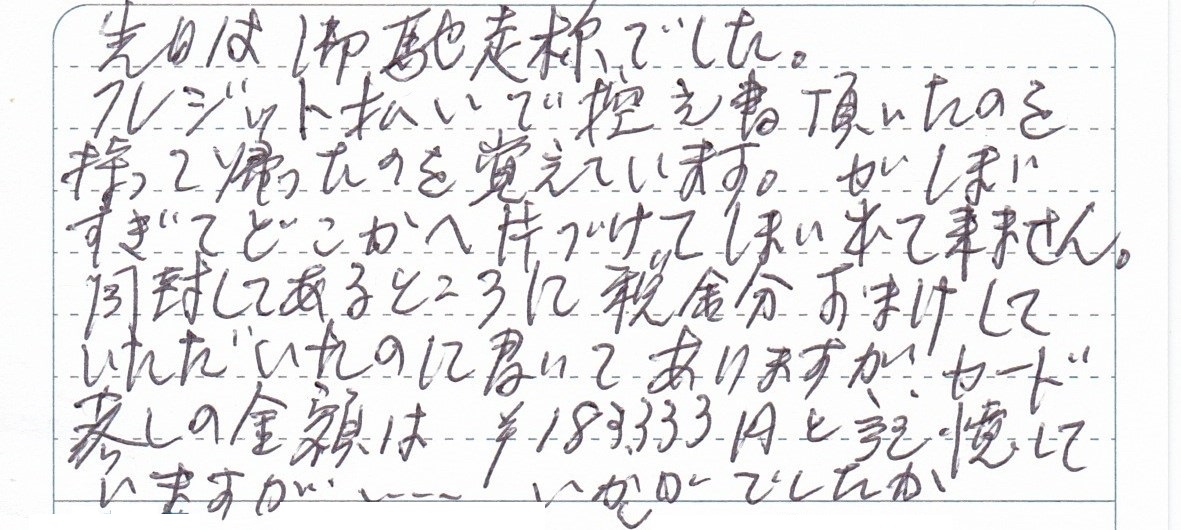 先日は御馳走様でした。
クレジット払いで控え書頂いたのを
持って帰ったのを覚えています。がしまい
すぎてどこかへ片づけてしまい出て来ません。
同封してあるところに税金分おまけして
いただいたのに書いてありますが、カード
差しの金額は ¥183333円と記憶して
いますが、---- いかがでしたか